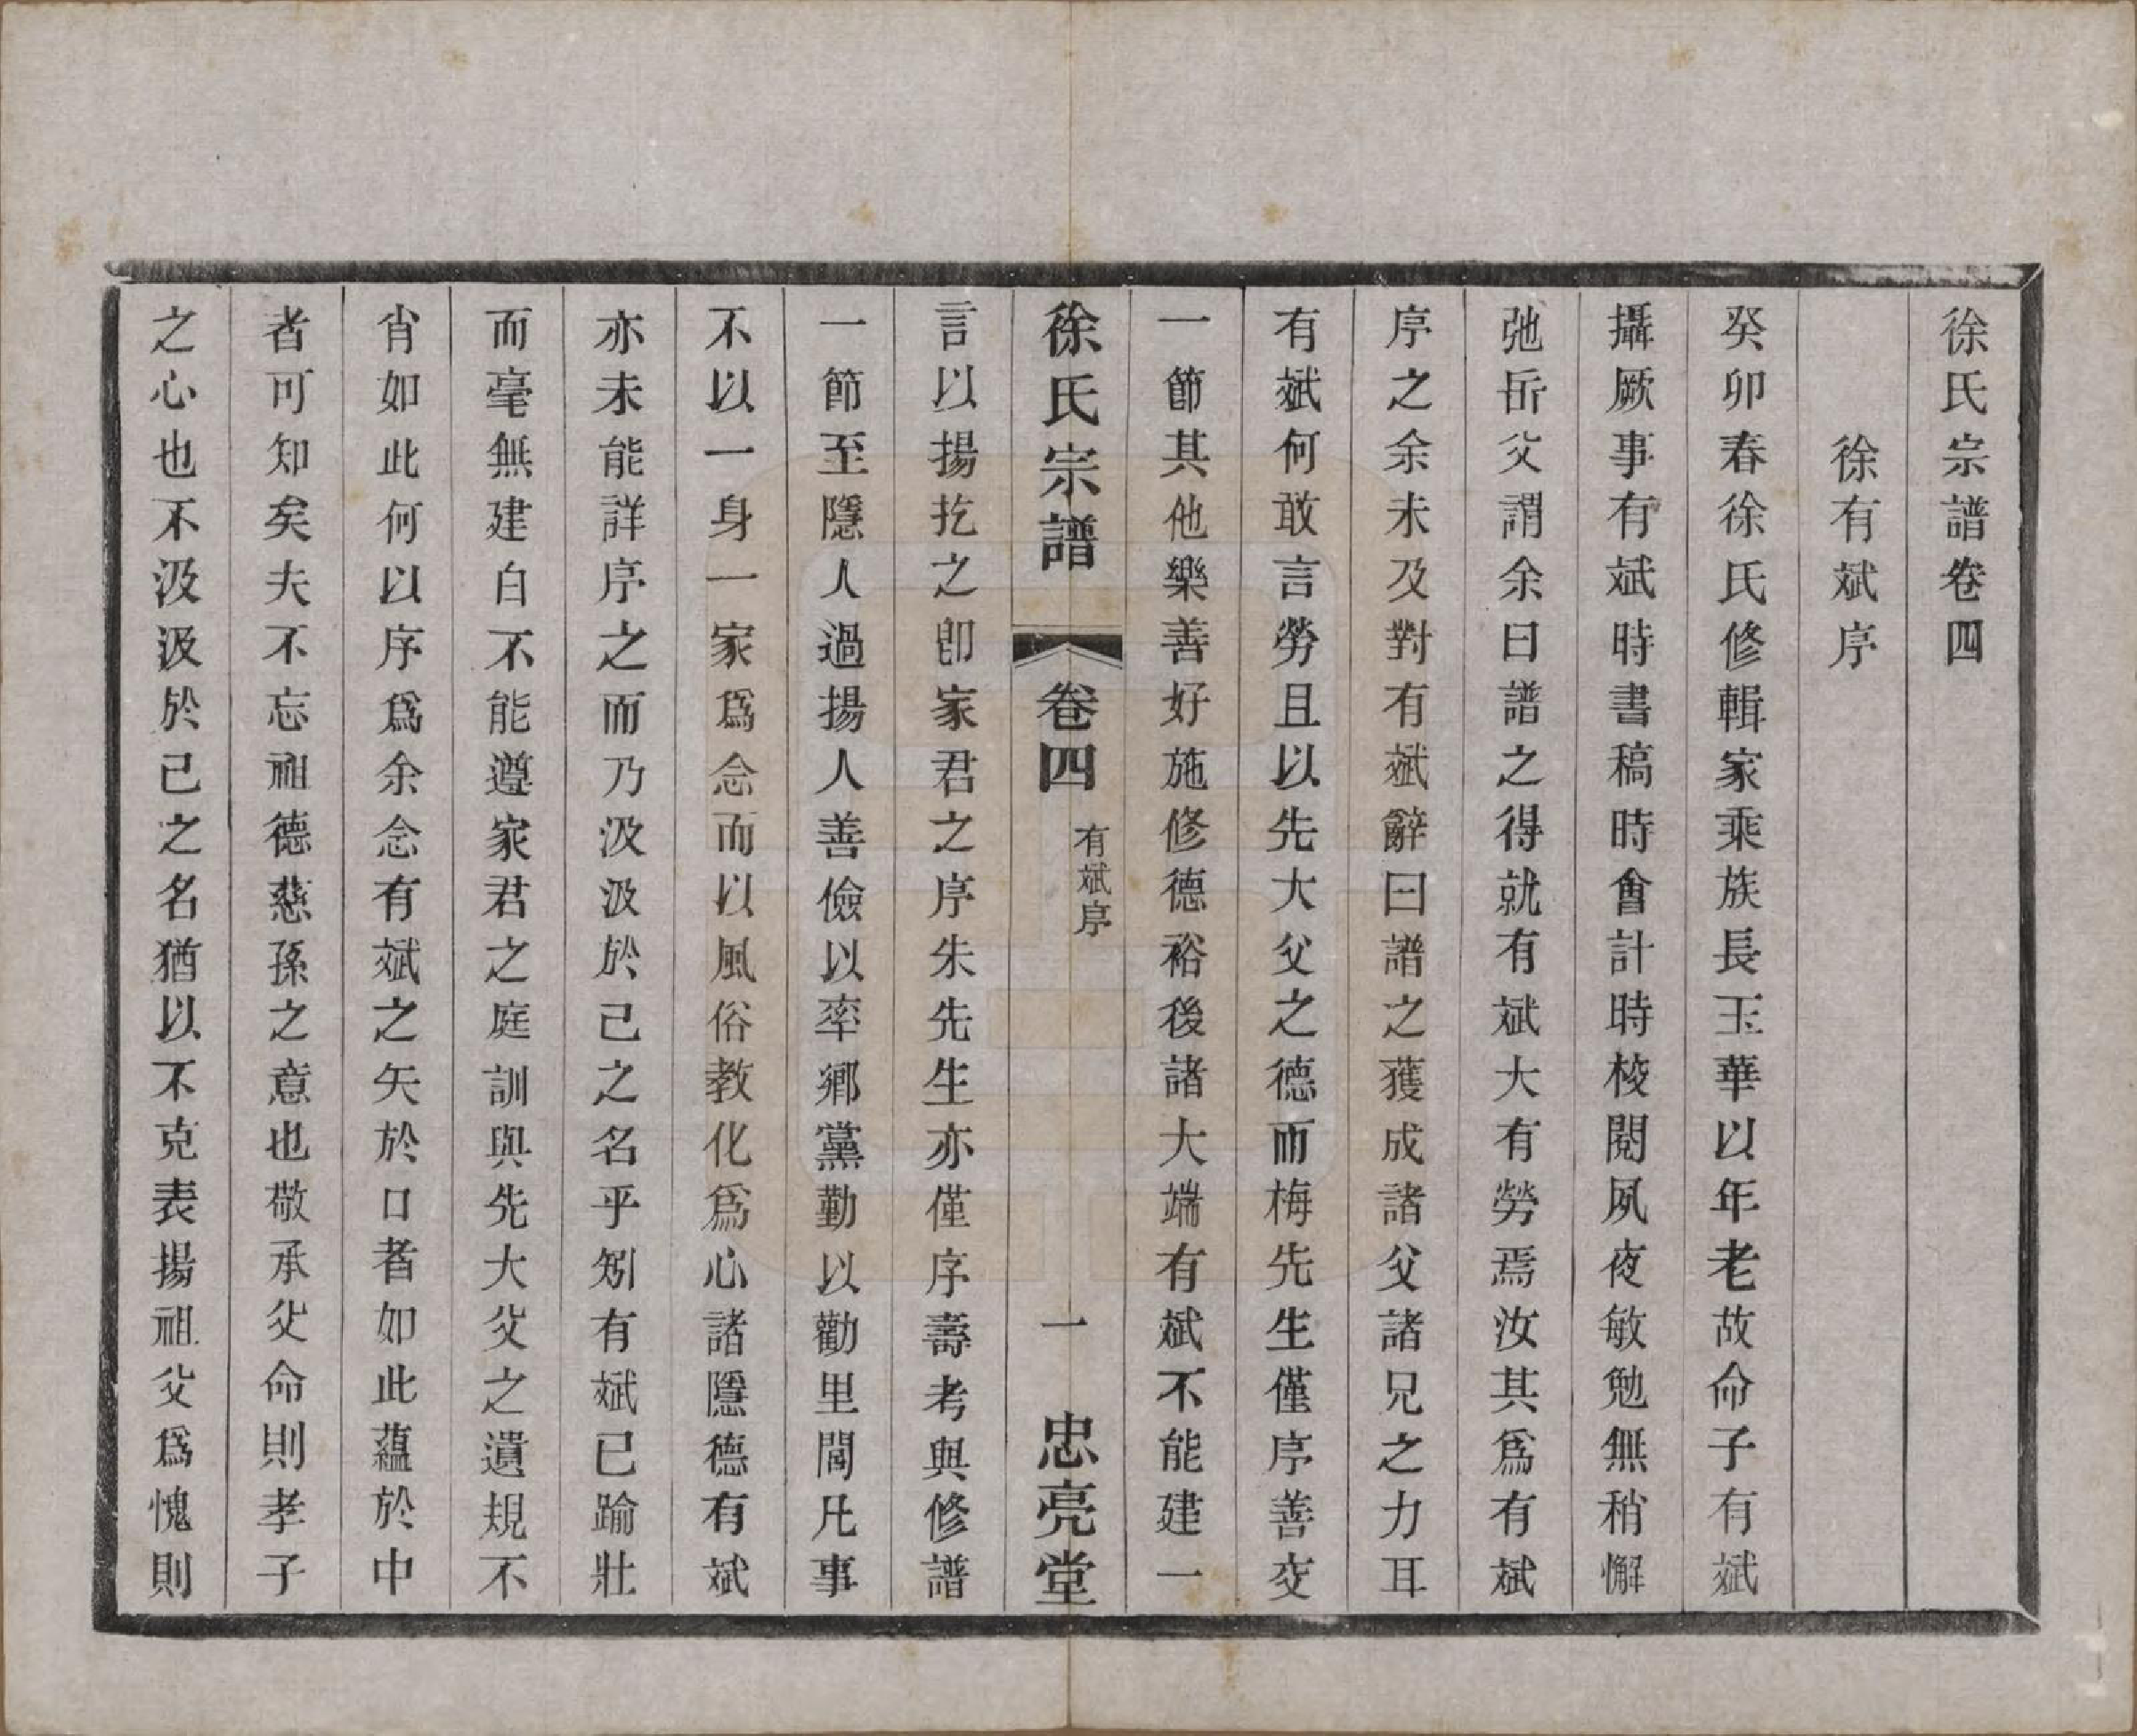 徐氏宗譜卷四
徐有斌序
癸卯春徐氏修輯家乘族長玉華以年老故命子有斌
攝厥事有斌時書稿時會計時校閱夙夜敏勉無稍懈
弛岳父謂余曰譜之得就有斌大有勞焉汝其爲有斌
序之余未及對有斌辭曰譜之獲成諸父諸兄之力耳
有斌何敢言勞且以先大父之德而梅先生僅序善交
一節其他樂善好施修德裕後諸大端有斌不能建一
徐氏宗譜 卷四 有斌序 一 忠亮堂
言以揚扢之卽家君之序朱先生亦僅序壽考與修譜
一節至隱人過揚人善儉以率鄉黨勤以勸里閭凡事
不以一身一家爲念而以風俗教化爲心諸隱德有斌
亦未能詳序之而乃汲汲於己之名乎矧有斌已踰壯
而毫無建白不能遵家君之庭訓與先大父之遺規不
肖如此何以序爲余念有斌之矢於口者如此蘊於中
者可知矣夫不忘祖德慈孫之意也敬承父命則孝子
之心也不汲汲於己之名猶以不克表揚祖父爲愧則